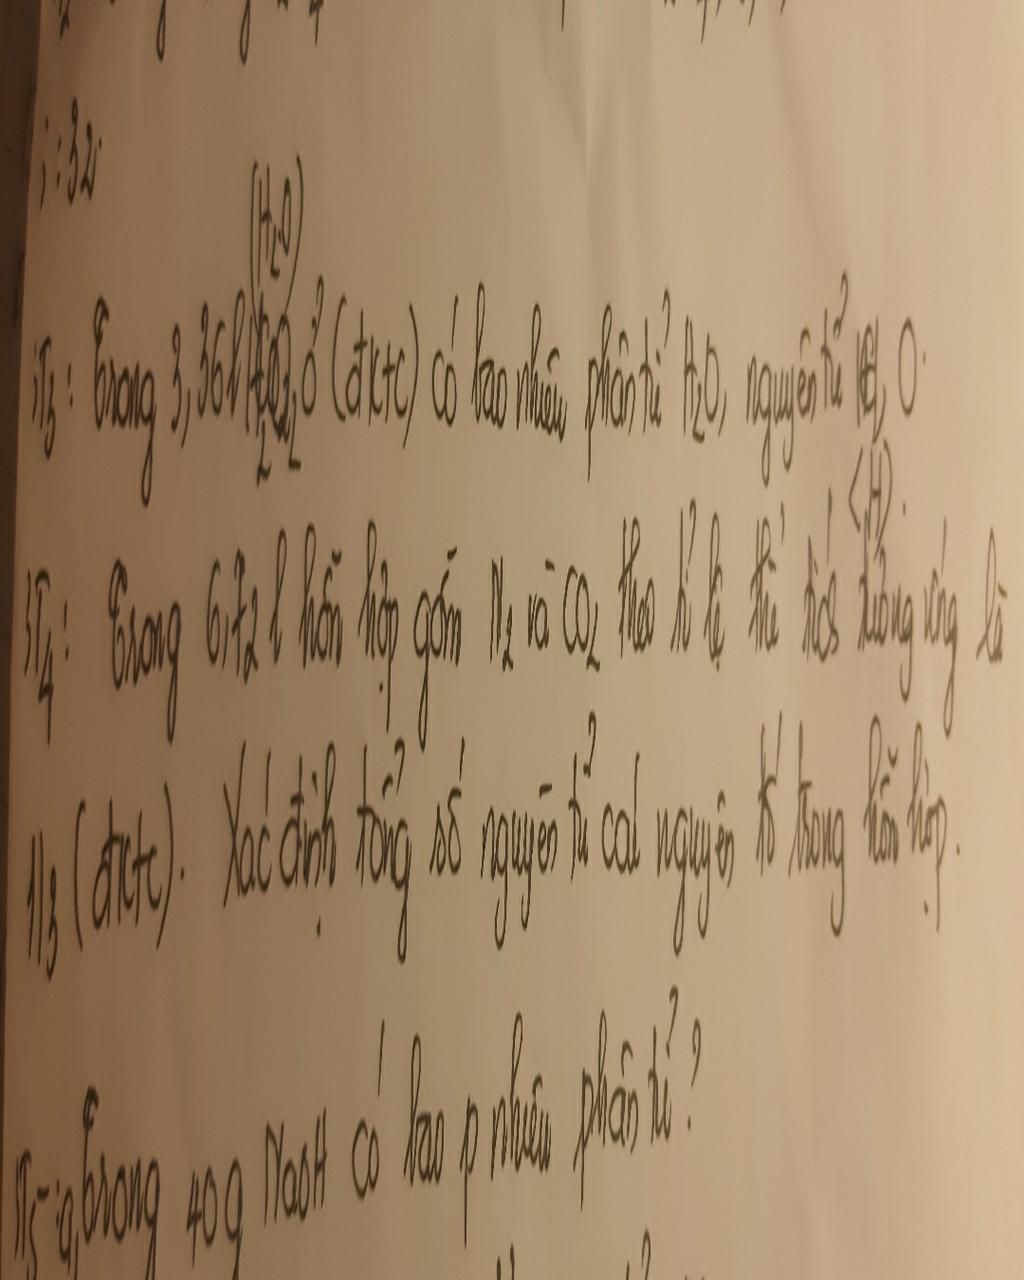 ; : 32.
(H₂O)
3: Trong 3,36l ở (đktc) có bao nhiêu phân tử H₂O, nguyên tử, O.
(H).
4: Trong 6,72 l hỗn hợp gồm N₂ và CO₂ theo tỉ lệ thể tích tương ứng là
1:3 (đktc). Xác định tổng số nguyên tử các nguyên tố trong hỗn hợp.
5 - a, Trong 40g NaOH có bao nhiêu phân tử?